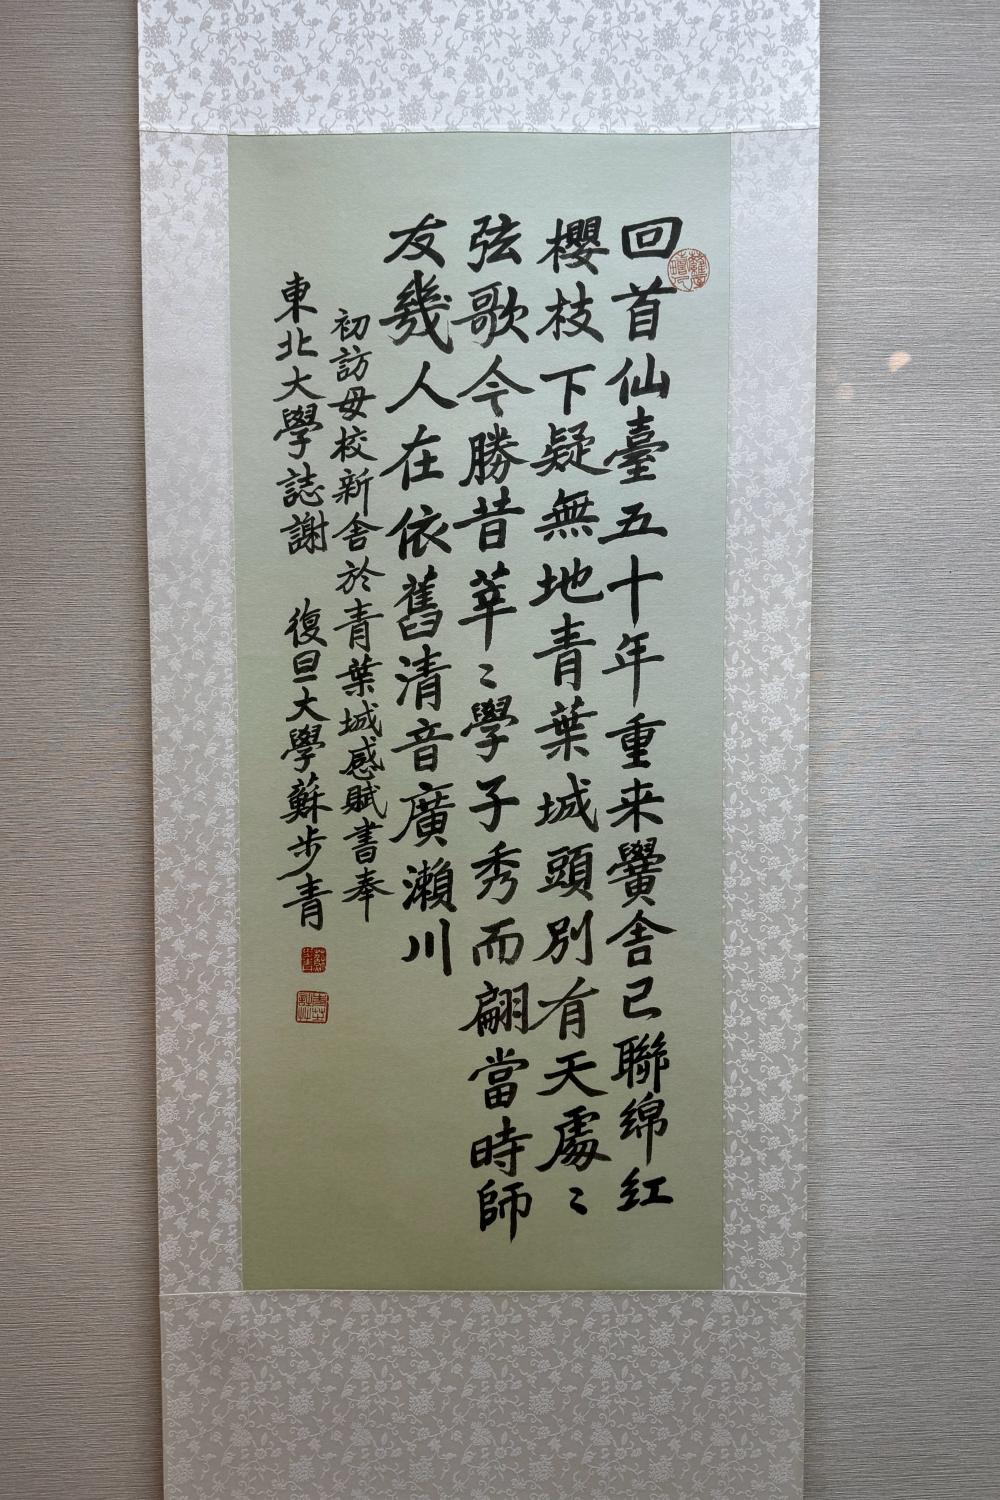 回首仙臺五十年重来黌舎已聯綿红
櫻枝下疑無地青葉城頭別有天處〻
弦歌今勝昔莘〻學子秀而翩當時師
友幾人在依舊清音廣瀬川
初訪母校新舎於青葉城感賦書奉
東北大學誌謝 復旦大學蘇步青